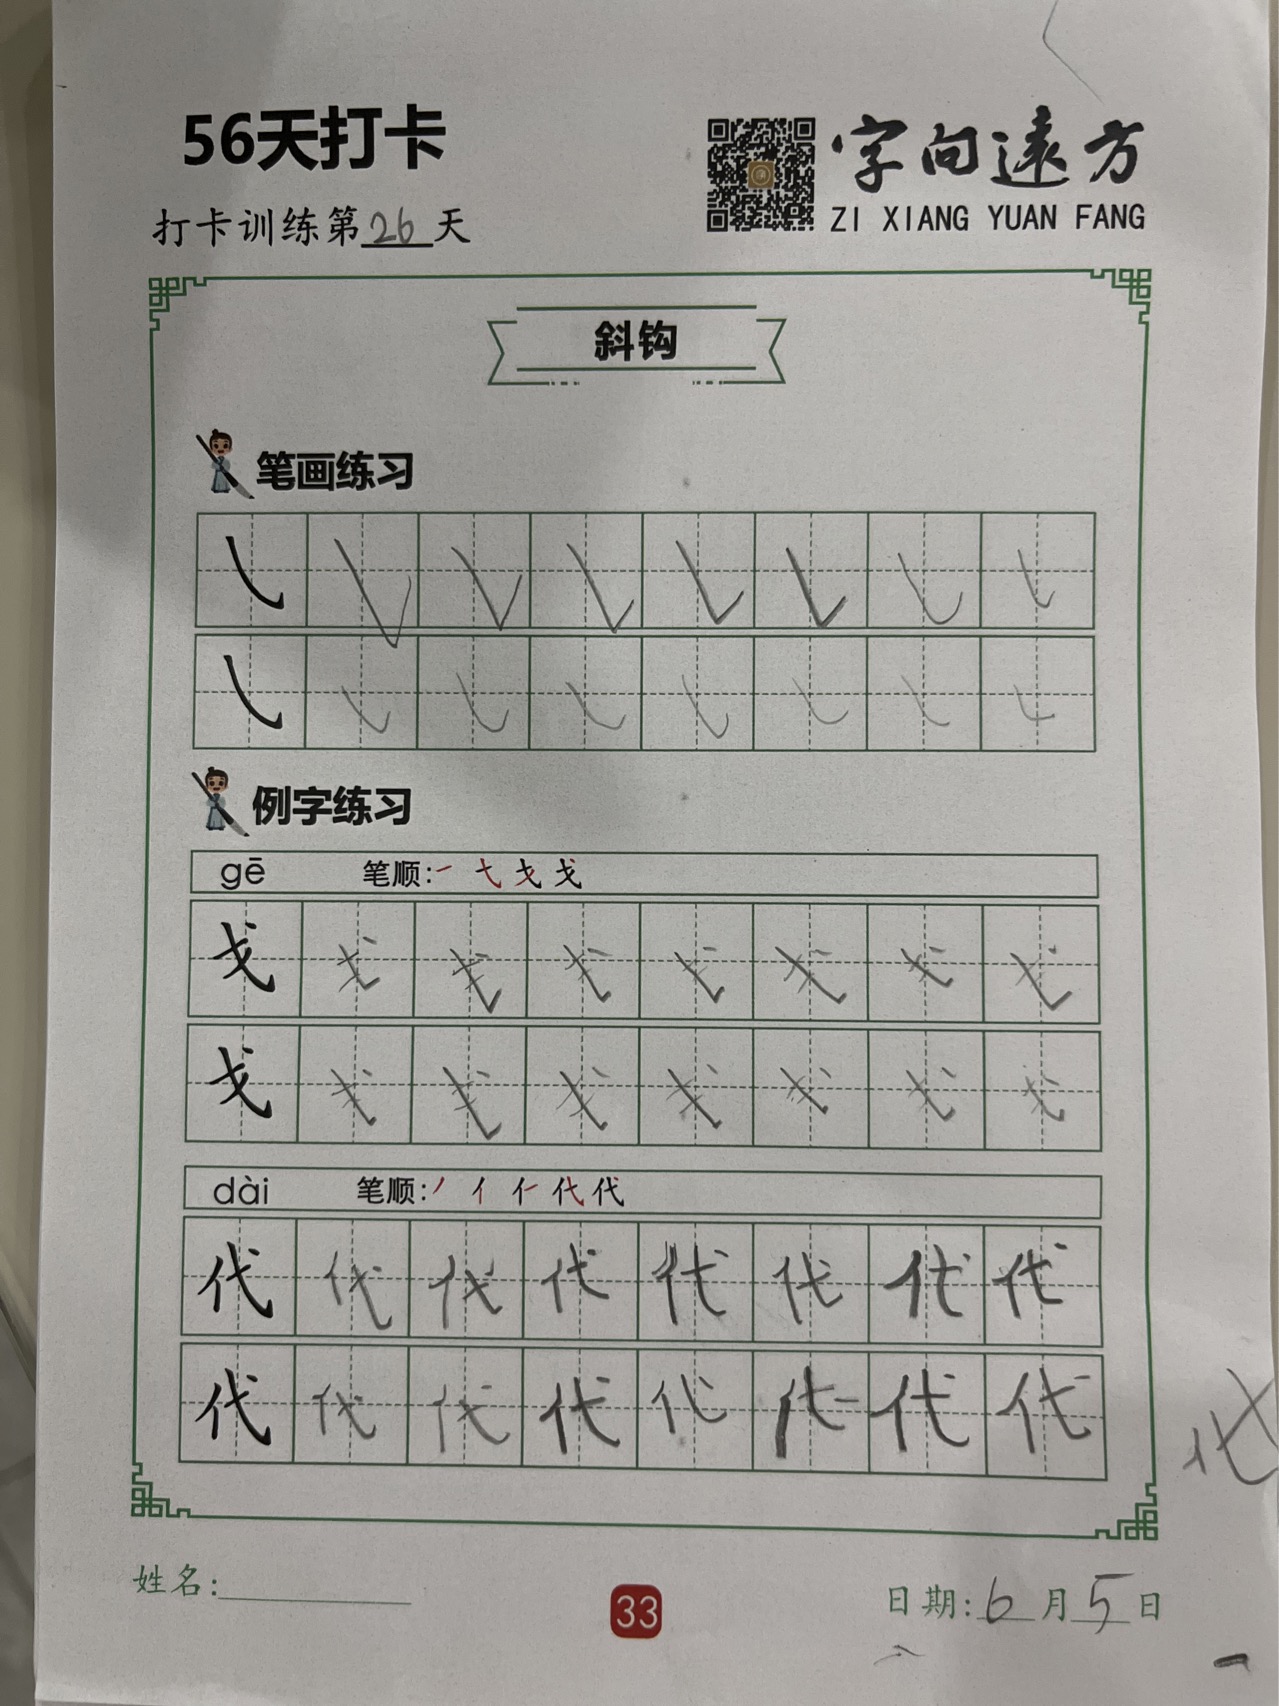 56天打卡
字向遠方
ZI XIANG YUAN FANG
打卡训练第26天
斜钩
笔画练习
㇂
㇂
例字练习
gē 笔顺:㇀ 弋 戈 戈
戈 戈 戈 戈 戈 戈 戈 戈
戈 戈 戈 戈 戈 戈 戈 戈
dài 笔顺:丿 亻 仁 代 代
代 代 代 代 代 代 代 代
代 代 代 代 代 代 代 代
代
姓名:
33
日期:6月5日